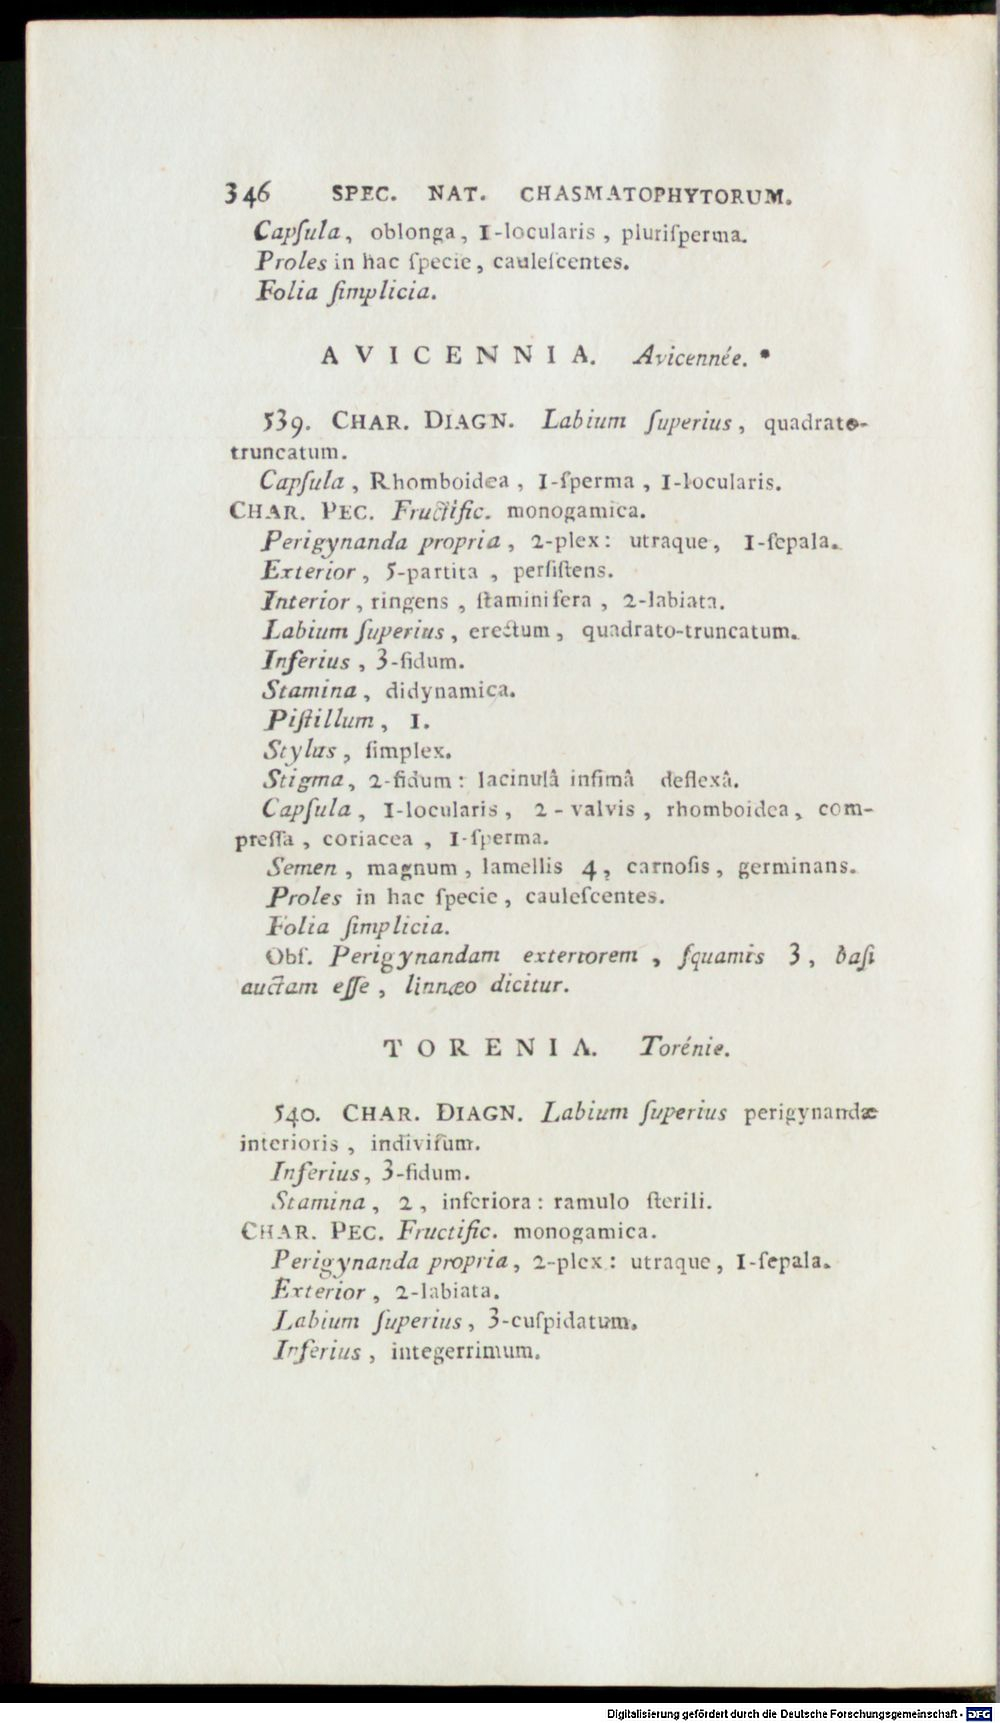 346 SPEC. NAT. CHASMATOPHYTORUM.
Capſula, oblonga, 1-locularis, pluriſperma.
Proles in hac ſpecie, cauleſcentes.
Folia ſimplicia.
AVICENNIA. Avicennée. *
539. CHAR. DIAGN. Labium ſuperius, quadrato-
truncatum.
Capſula, Rhomboidea, 1-ſperma, 1-locularis.
CHAR. PEC. Fructific. monogamica.
Perigynanda propria, 2-plex: utraque, 1-ſepala.
Exterior, 5-partita, perſiſtens.
Interior, ringens, ſtaminifera, 2-labiata.
Labium ſuperius, erectum, quadrato-truncatum.
Inferius, 3-fidum.
Stamina, didynamica.
Piſtillum, 1.
Stylus, ſimplex.
Stigma, 2-fidum: lacinulâ infimâ deflexâ.
Capſula, 1-locularis, 2-valvis, rhomboidea, com-
preſſa, coriacea, 1-ſperma.
Semen, magnum, lamellis 4, carnoſis, germinans.
Proles in hac ſpecie, cauleſcentes.
Folia ſimplicia.
Obſ. Perigynandam exteriorem, ſquamis 3, baſi
auctam eſſe, linnæo dicitur.
TORENIA. Torénie.
540. CHAR. DIAGN. Labium ſuperius perigynandæ
interioris, indiviſum.
Inferius, 3-fidum.
Stamina, 2, inferiora: ramulo ſterili.
CHAR. PEC. Fructific. monogamica.
Perigynanda propria, 2-plex: utraque, 1-ſepala.
Exterior, 2-labiata.
Labium ſuperius, 3-cuſpidatum.
Inferius, integerrimum.
Digitalisierung gefördert durch die Deutsche Forschungsgemeinschaft - DFG